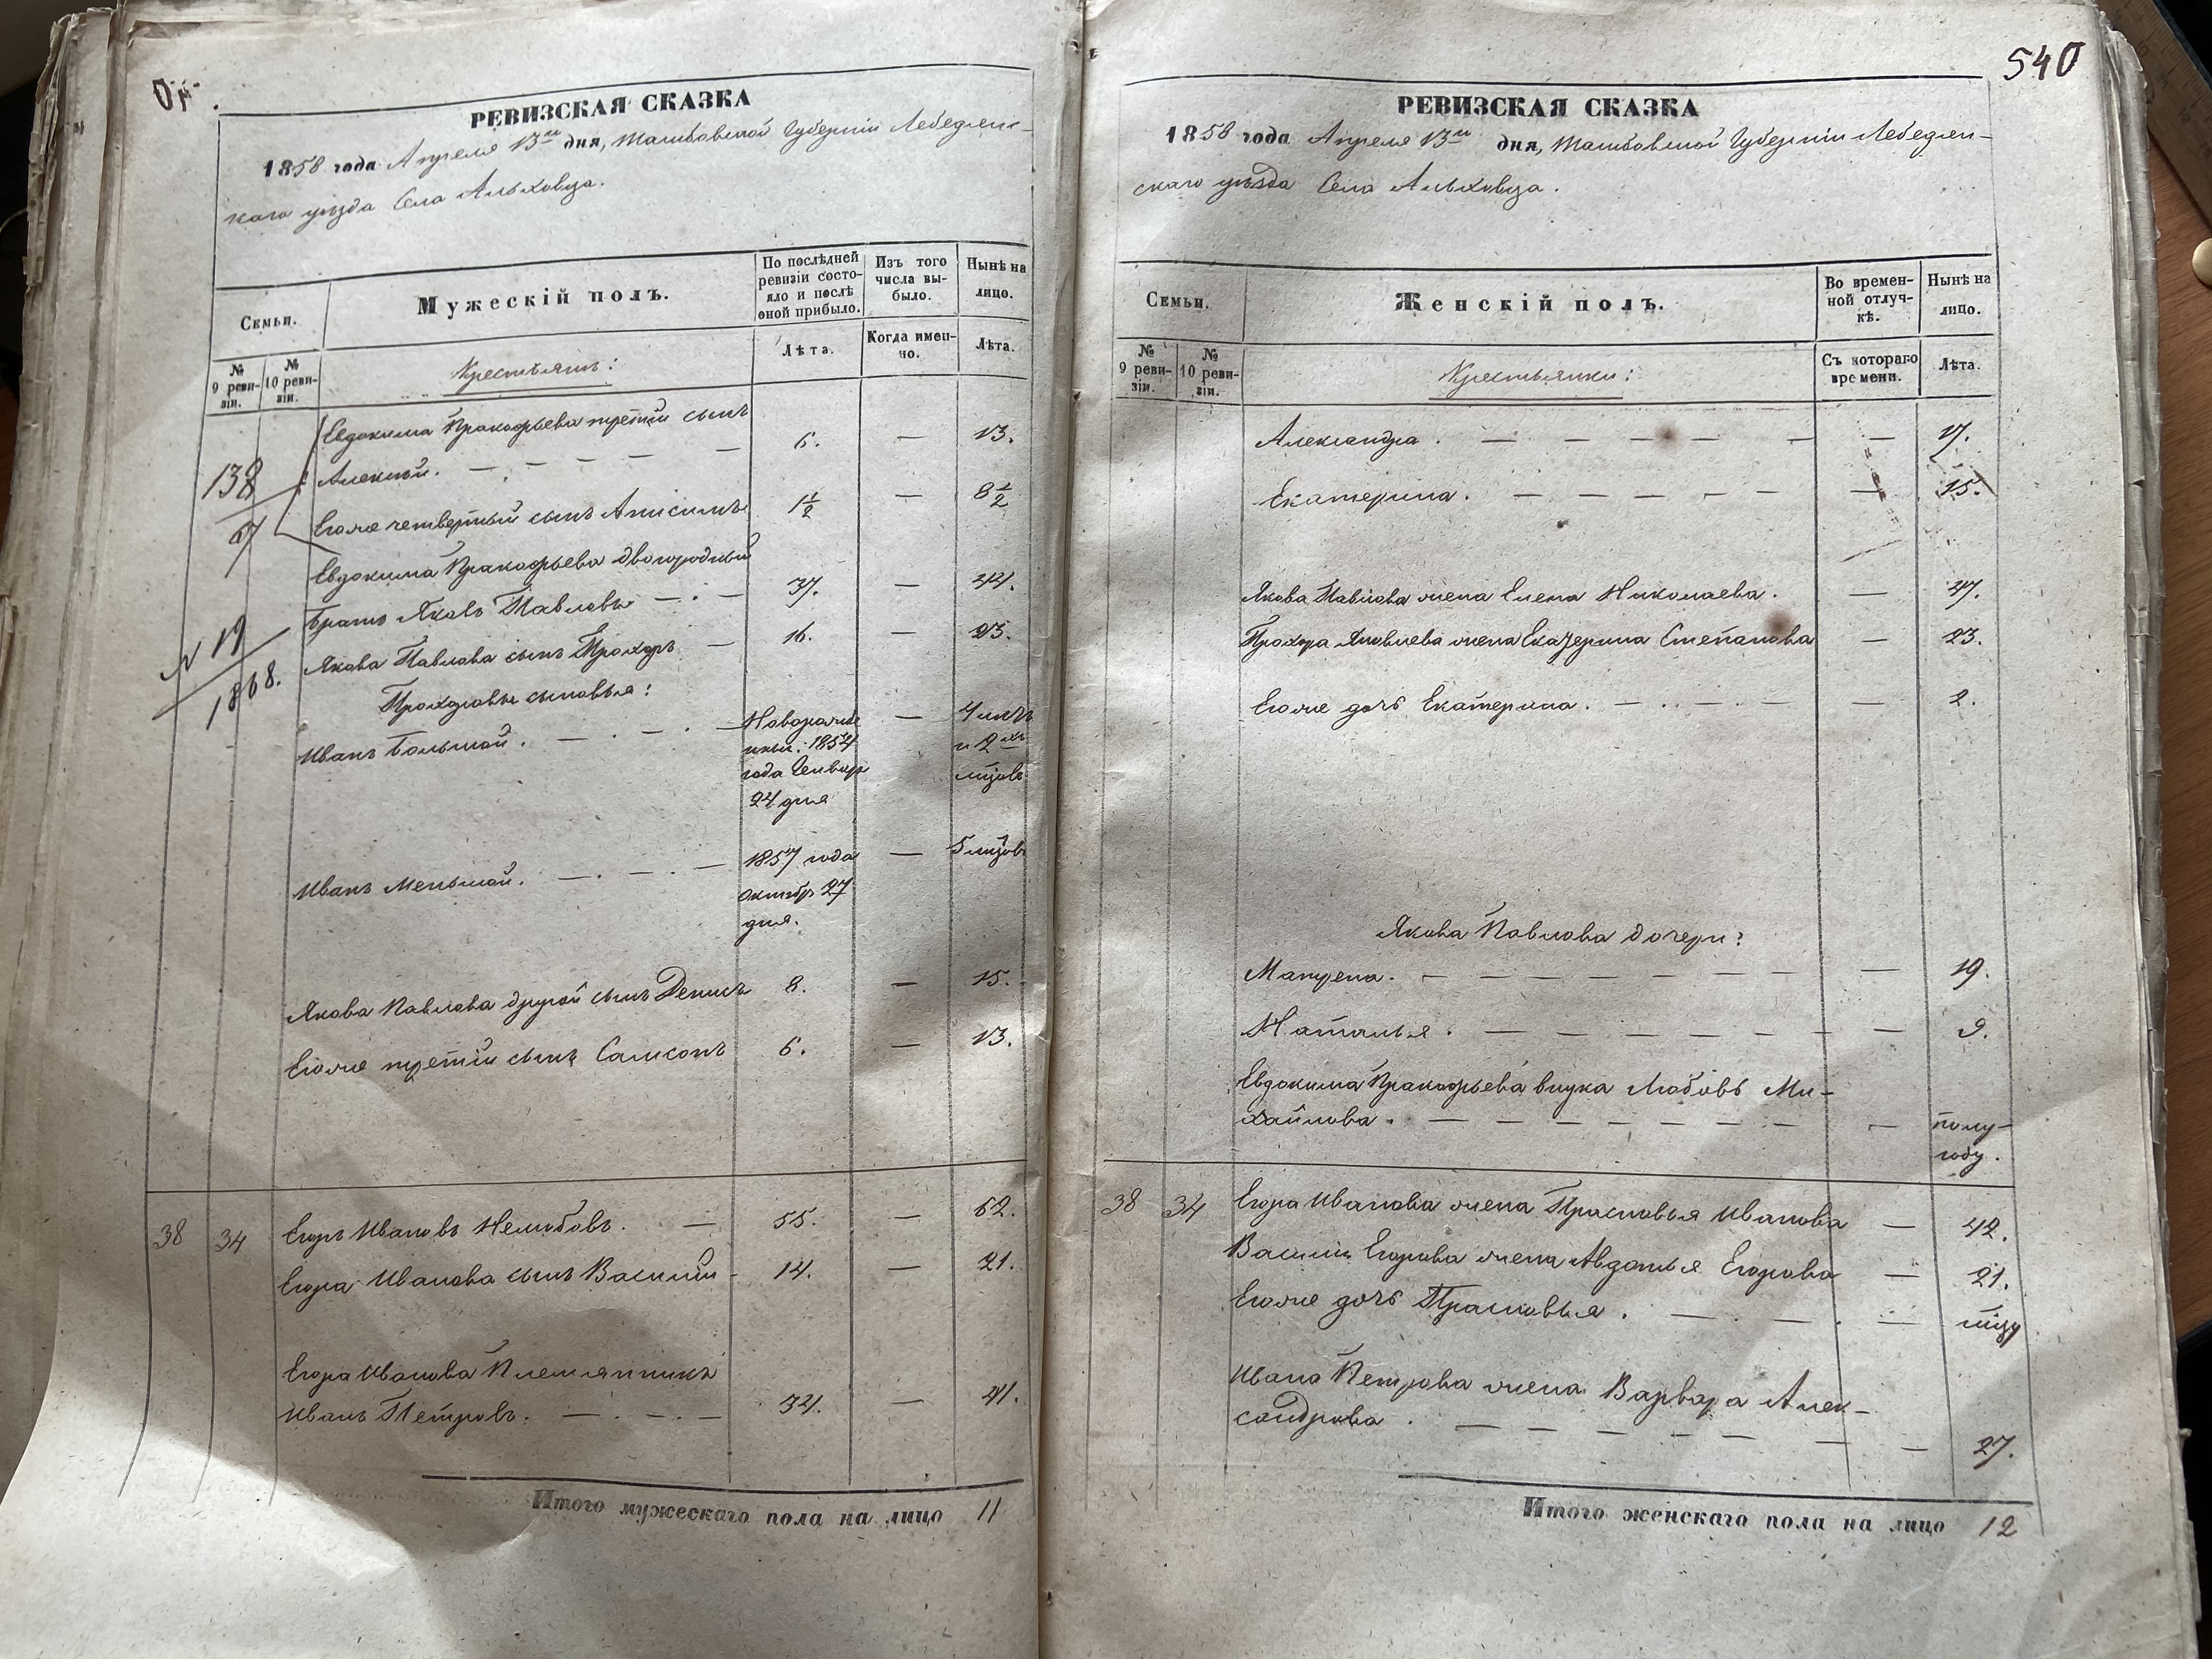 РЕВИЗСКАЯ СКАЗКА
1858 года Апреля 13го дня, Тамбовской Губерніи Лебедян-
скаго уѣзда Села Альховца.
Семьи.
Мужескій полъ.
По послѣдней ревизіи состо-яло и послѣ оной прибыло.
Изъ того числа вы-было.
Нынѣ на лицо.
№ 9 реви-зіи.
№ 10 реви-зіи.
Крестьянъ:
Лѣта.
Когда имен-но.
Лѣта.
Евдокима Прокофьева третій сынъ
Алексѣй. — — — — — 6. — 13.
138
67
Егоже четвертый сынъ Анисимъ 1½ — 8½
Евдокима Прокофьева двоюродный
братъ Яковъ Павловъ — . — 37. — 44.
N 19
1868.
Якова Павлова сынъ Прохоръ — 16. — 23.
Прохоровы сыновья:
Иванъ Большой. — . — . — Новорожде — 4 летъ
нный: 1854 и 2хъ
года Генвар мцовъ
24 дня
Иванъ Меньшой. — . — . — 1857 года — 5 мцовъ
Октябр 27
дня.
Якова Павлова другой сынъ Денисъ 8. — 15.
Егоже третій сынъ Самсонъ 6. — 13.
38 34 Егоръ Ивановъ Нелюбовъ. — 55. — 62.
Егора Иванова сынъ Василій - 14. — 21.
Егора Иванова Племянникъ
Иванъ Петровъ. — . — . — 34. — 41.
Итого мужескаго пола на лицо 11
540
РЕВИЗСКАЯ СКАЗКА
1858 года Апреля 13го дня, Тамбовской Губерніи Лебедян-
скаго уѣзда Села Альховца.
Семьи.
Женскій полъ.
Во времен-ной отлуч-кѣ.
Нынѣ на лицо.
№ 9 реви-зіи.
№ 10 реви-зіи.
Крестьянки:
Съ котораго времени.
Лѣта.
Александра. — — — — — — — 17.
Екатерина. — — — — — — — 15.
Якова Павлова жена Елена Николаева. — 47.
Прохора Яковлева жена Екатерина Степанова — 23.
Егоже дочь Екатерина. — . — . — — 2.
Якова Павлова дочери:
Матрена. — — — — — — — 19.
Наталья. — — — — — — — 9.
Евдокима Прокофьева внука Любовь Ми-
хайлова. — — — — — — — — полу-
году.
38 34 Егора Иванова жена Прасковья Иванова — 42.
Василія Егорова жена Авдотья Егорова — 21.
Егоже дочь Прасковья. — . — . — мцу
Ивана Петрова жена Варвара Алек-
сандрова. — — — — — — — — 27.
Итого женскаго пола на лицо 12